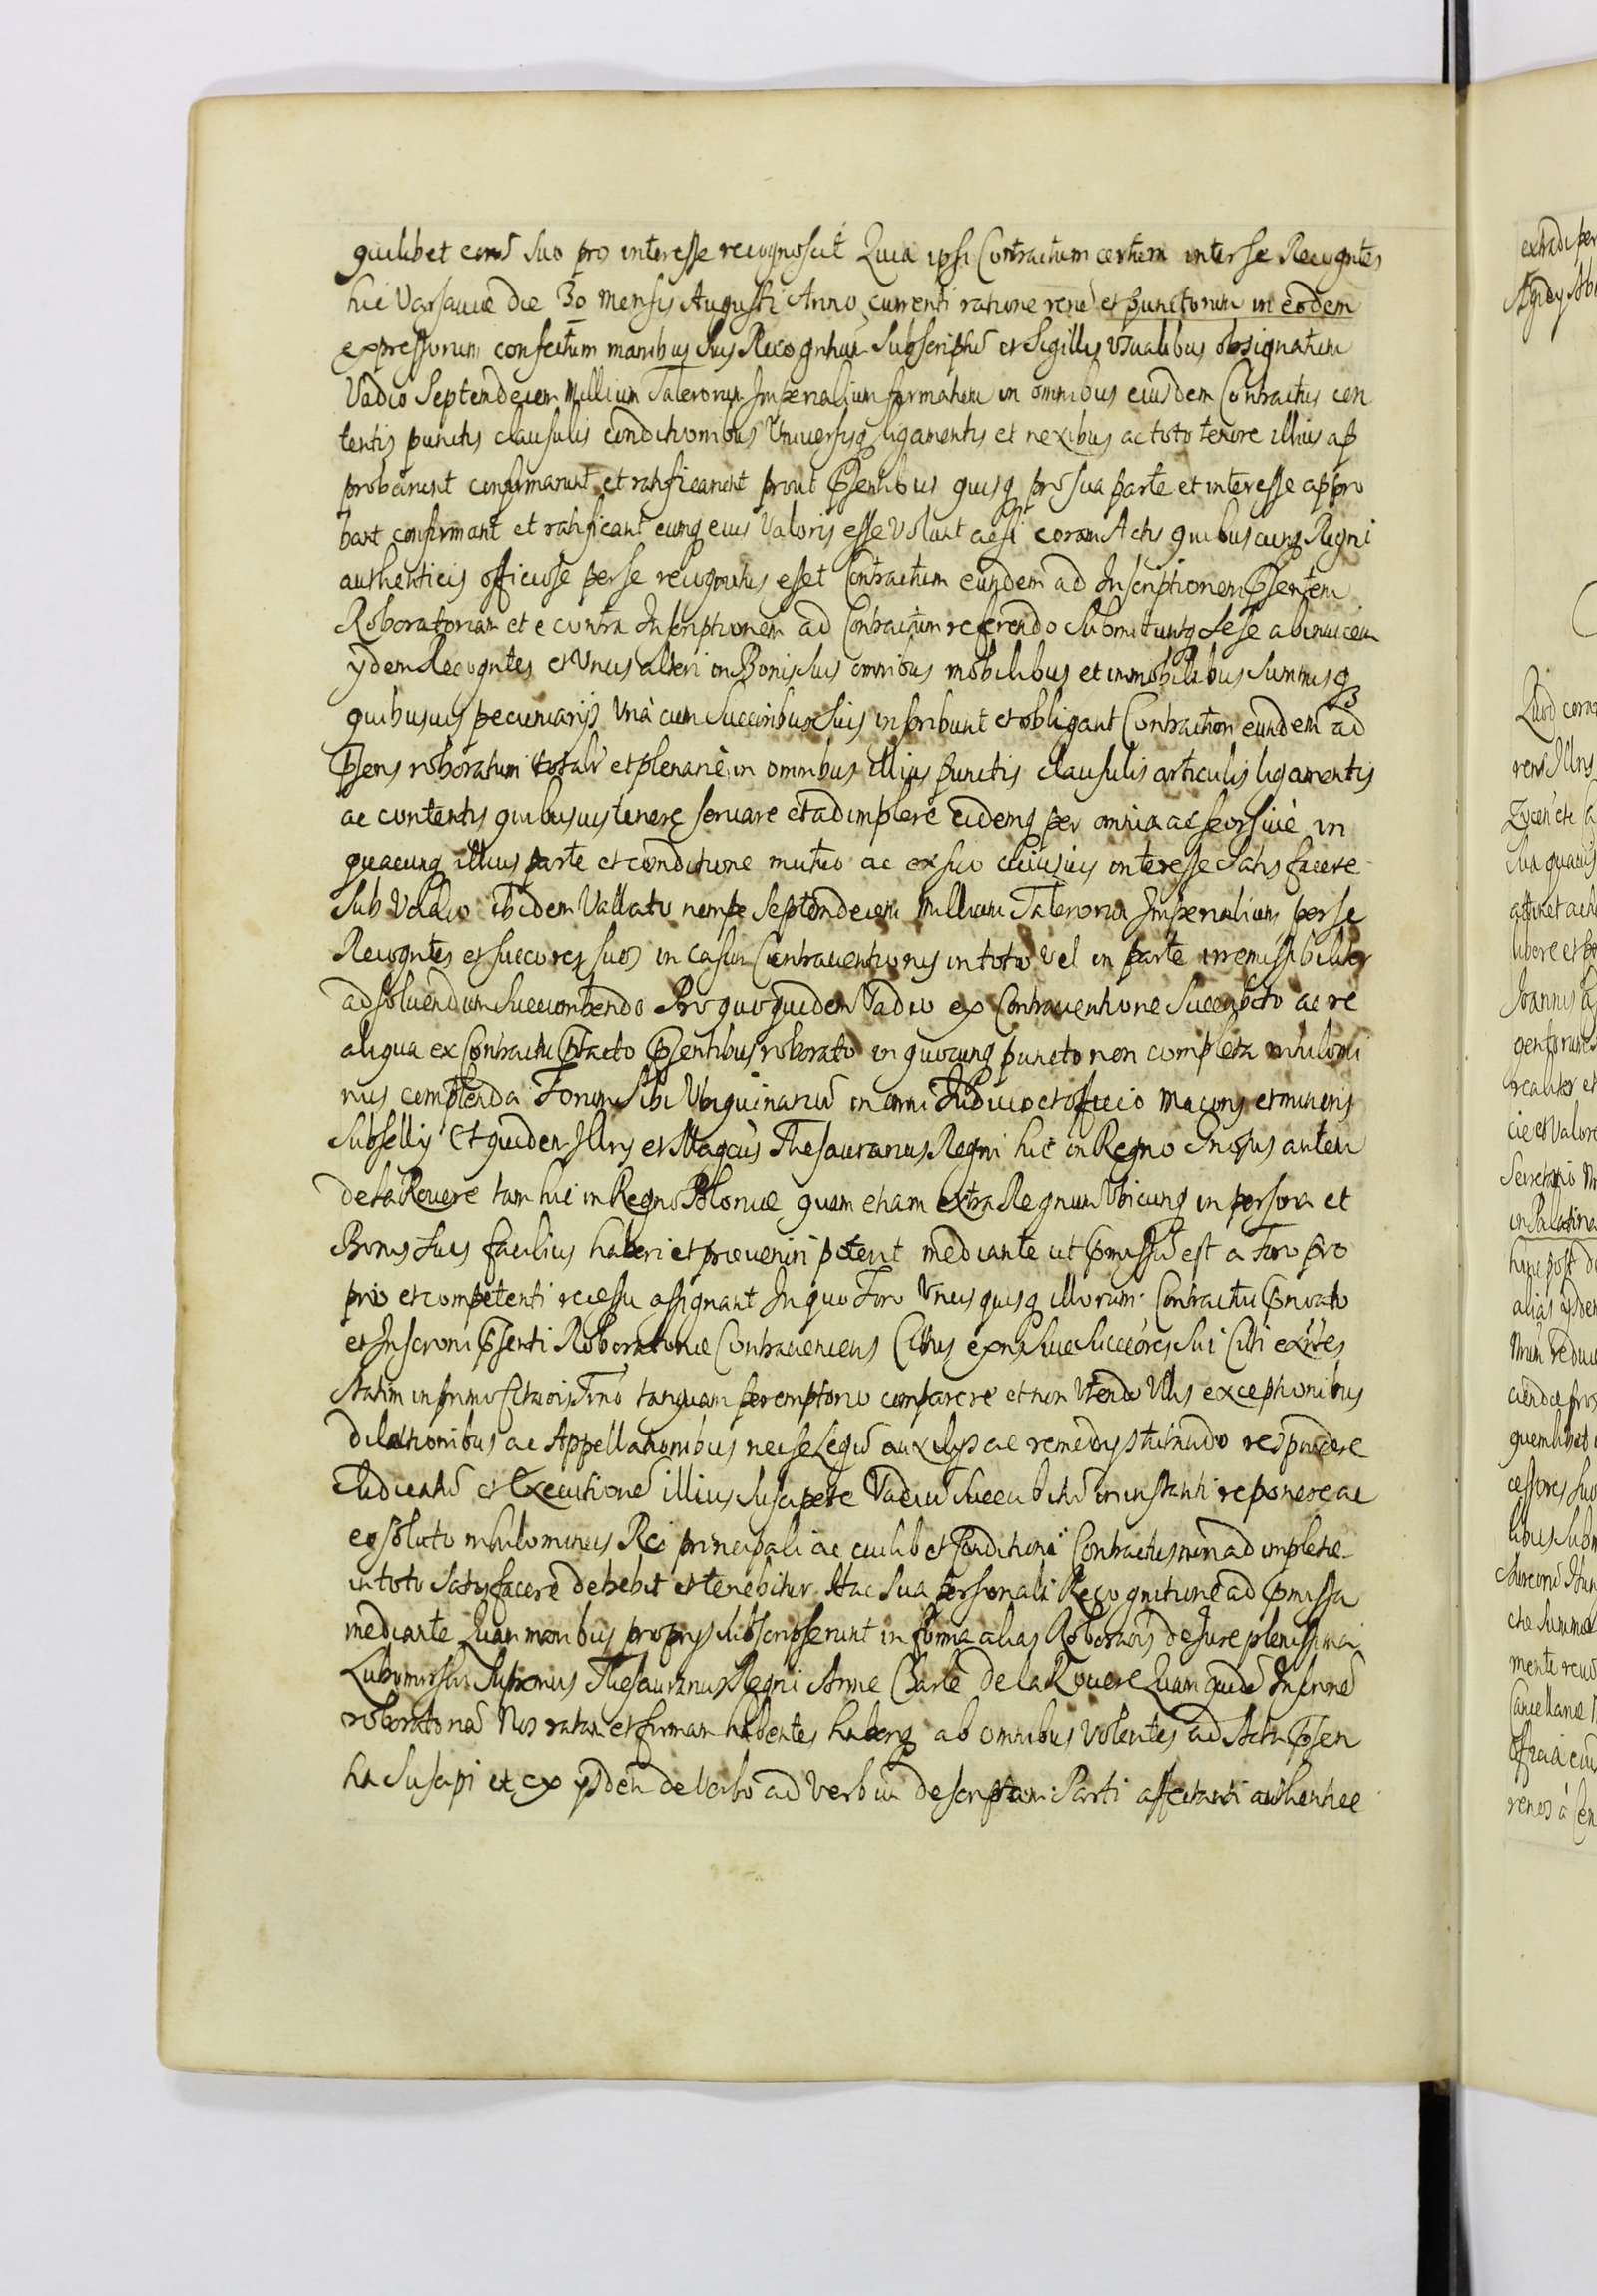 quilibet eorũ suo pro interesse recognoscit Quia ipsi Contractum certum inter se Recogntes
hic Varsaviæ die 30 Mensis Augusti Anno currenti ratione rerũ et punctorum in eodem
expressorum confectum manibus suis Recogntium Subscriptũ et Sigillis usualibus obsignatum
Vadio Septendecem Millium Talerorum Imperialium firmatum in omnibus eiusdem Contractus con
tentis punctis clausulis conditionibus Universisq ligamentis et nexibus ac toto tenore illius ap
probarunt confirmarunt et ratificarunt prout Psentibus quisq pro sua parte et interesse appro
bant confirmant et ratificant eumq eius Valoris esse Volunt ac si coram Actis quibuscunq Regni
authenticis officiose per se recognitus esset Contractum eundem ad Inscriptionem Psentem
Roboratoriam et e contra Inscriptionem ad Contractum referendo Submituntq sese abinvicem
ydem Recogntes et Unus alteri in Bonis suis omnibus mobilibus et immobilibus Summisq
quibusvis pecuniarijs Unà cum Succoribus suis inscribunt et obligant Contractum eundem ad
Psens roboratum totalr et plenarie in omnibus illius punctis clausulis articulis ligamentis
ac contentis quibusvis tenere servare et adimplere eidemq per omnia ac seorsive in
quacunq illius parte et conditione mutuo ac ex suo cuiusvis interesse Satis facere
Sub Vadio ibidem Vallato nempe Septendecem Millium Talerorum Imperialium per se
Recogntes et succores suos in casum Contraventionis in toto vel in parte irremissibiliter
ad solvendum succumbendo Pro quo quidem Vadio ex Contraventione Succubito ac re
aliqua ex Contractu Ptacto Psentibus roborato in quocunq puncto non completa nihilomi
nus complenda Forum Sibi Ubiquinariũ in omni Judicio et officio Maioris et minoris
Subsellij Et quidem Illris et Magcus Thesaurarius Regni hic in Regno Gnosus autem
de la Rovere tam hic in Regno Poloniæ quam etiam extra Regnum Ubicunq in persona et
Bonis suis facilius haberi et præveniri poterit mediante ut Pmissũ est a Foro pro
prio et competenti recessu assignant In quo Foro Unus quisq illorum Contractui Privato
et Inscroni Psenti Roboratoriæ Contraveniens Citus exns sive Succores sui Citi exntes
Statim in primo Ctaois Trno tanquam peremptorio comparere et non Utendo Ullis exceptionibus
dilationibus ac Appellationibus nec se Legũ auxilijs ac remedijs tuendo respondere
Judicatũ et Executionẽ illius suscipere Vadiũ Succubitũ in instanti reponere ac
eo soluto nihilominus Rei principali ac cuilibet Conditioni Contractus non adimpletæ
in toto satisfacere debebit et tenebitur Hac Sua personali Recognitione ad Pmissa
mediante Quam manibus proprijs Subscripserunt in forma alias Roboraois de Jure plenissima
Lubomirski Supremus Thesaurarius Regni Anne Charle de la Rovere Quam quidẽ Inscronẽ
roboratoriã Nos ratam et firmam habentes haberiq ab omnibus volentes ad Acta Psen
tia suscepi et ex ysdem de verbo ad verbum descriptam Parti affectanti authentice